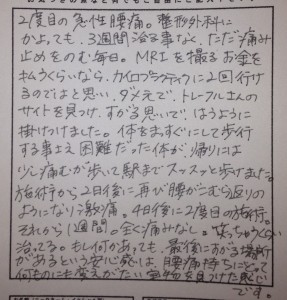 2度目の急性腰痛。整形外科に
かよっても、3週間治る事なく、ただ痛み
止めをのむ毎日。MRIを撮るお金を
払うくらいなら、カイロプラクティックに2回行け
るのではと思い、ダメ元で、トレフルさんの
サイトを見つけ、すがる思いで、はうように
掛けつけました。体をまっすぐにして歩行
する事さえ困難だった体が、帰りには
少し痛むが歩いて駅までスッスッと歩けました。
施術から2日後に再び腰がこむら返りの
ようになり激痛。4日後に2度目の施術。
それから1週間。全く痛みなし。笑っちゃうくらい
治ってる。もし何かあっても、最後にすがる場所
があるという安心感は、腰痛持ちにとって
何ものにも変えがたい宝物を見つけた思い
です。